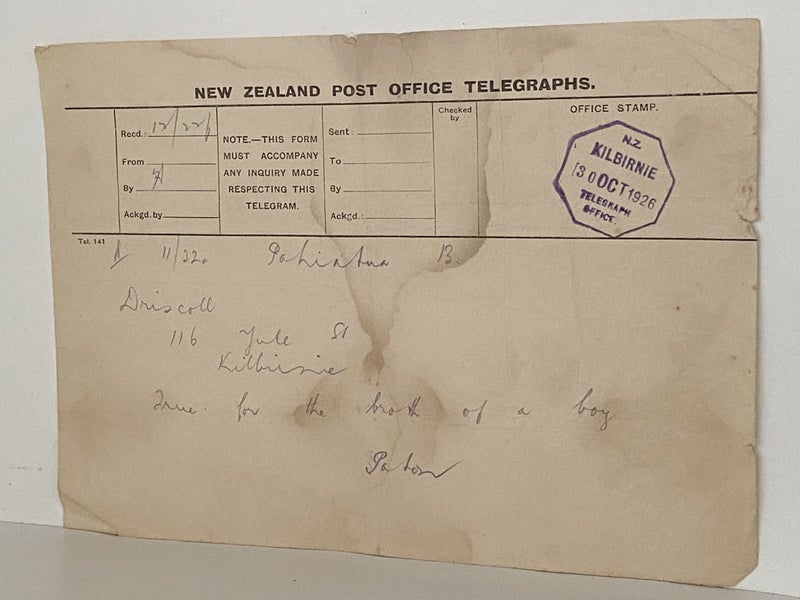 NEW ZEALAND POST OFFICE TELEGRAPHS.
Recd.: 12/22p
From
By
Ackgd. by
NOTE.—THIS FORM
MUST ACCOMPANY
ANY INQUIRY MADE
RESPECTING THIS
TELEGRAM.
Sent:
To
By
Ackgd.:
Checked
by
OFFICE STAMP.
N.Z.
KILBIRNIE
30 OCT 1926
TELEGRAPH
OFFICE.
Tel. 141
11/32a Pahiatua 13.
Driscoll
116 Yule St
Kilbirnie
True for the broth of a boy
Paton